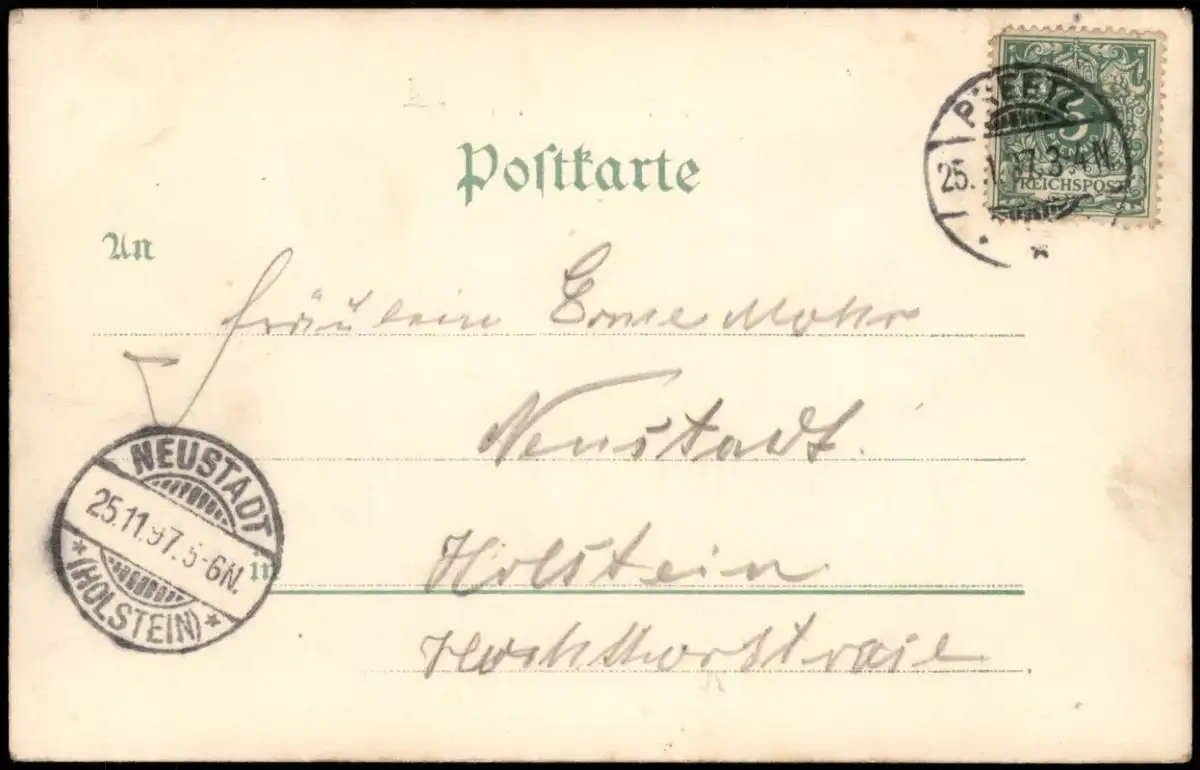 Postkarte
PREETZ
25. 97. 3-4 N.
5
PFENNIG
REICHSPOST
An
Fräulein Erne Mohr
Neustadt.
NEUSTADT
25.11.97. 5-6 N.
(HOLSTEIN)
in
Holstein.